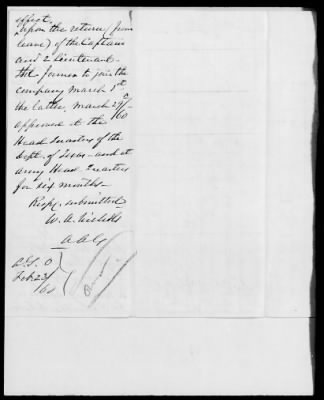 effect
upon the return (from
leave) of the Captain
and 2 Lieutenant -
the former to join the
company March 1st
the latter, March 29th/60
approved at the
Head Quarters of the
Dept. of Texas - and at
Army Head Quarters
for six months -
Respy. submitted
W. A. Nichols
A A G
A. G. O
Feb. 23/60